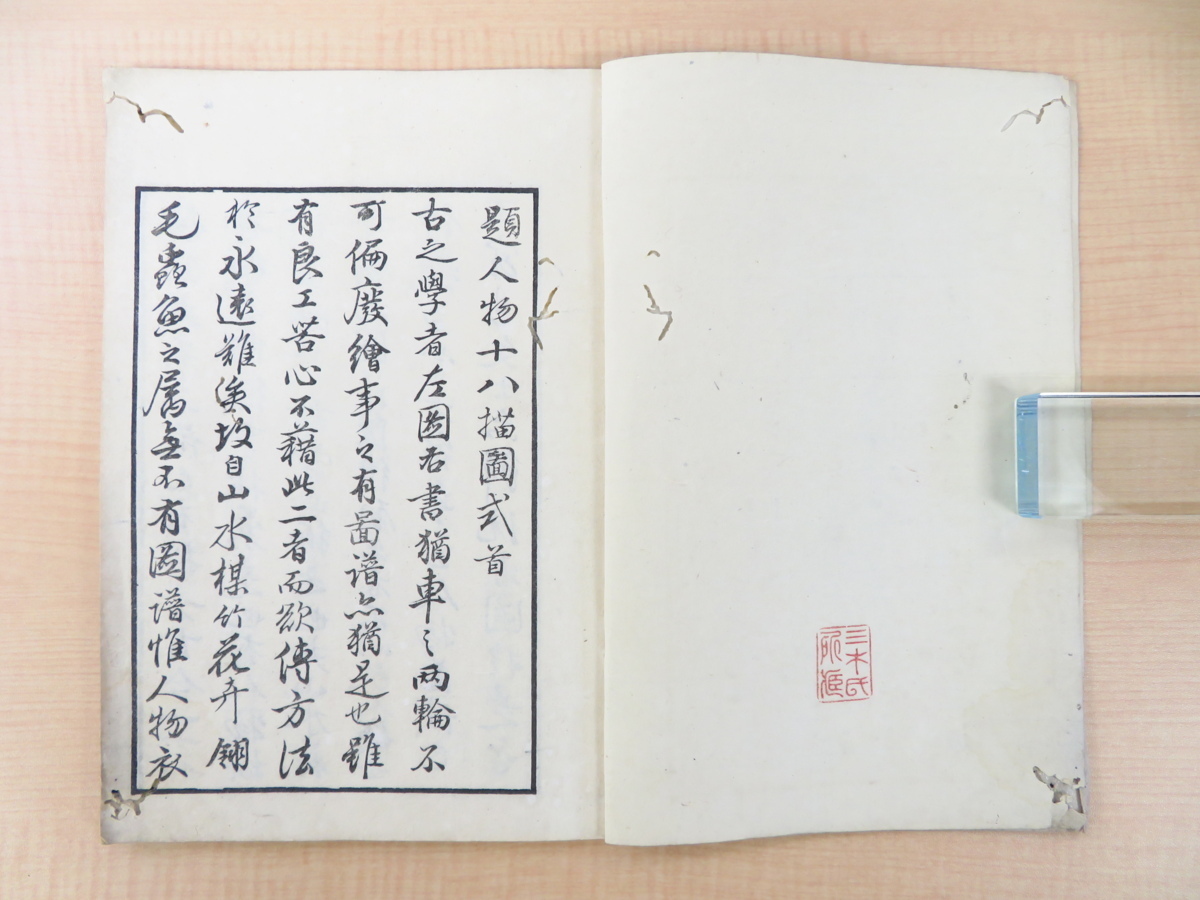 題人物十八描圖式首
古之學者左圖右書猶車之兩輪不
可偏廢繪事之有圖譜亦猶是也雖
有良工苦心不藉此二者而欲傳方法
於永遠難矣故自山水楳竹花卉翎
毛蟲魚之属無不有圖譜惟人物衣
三木氏
所藏